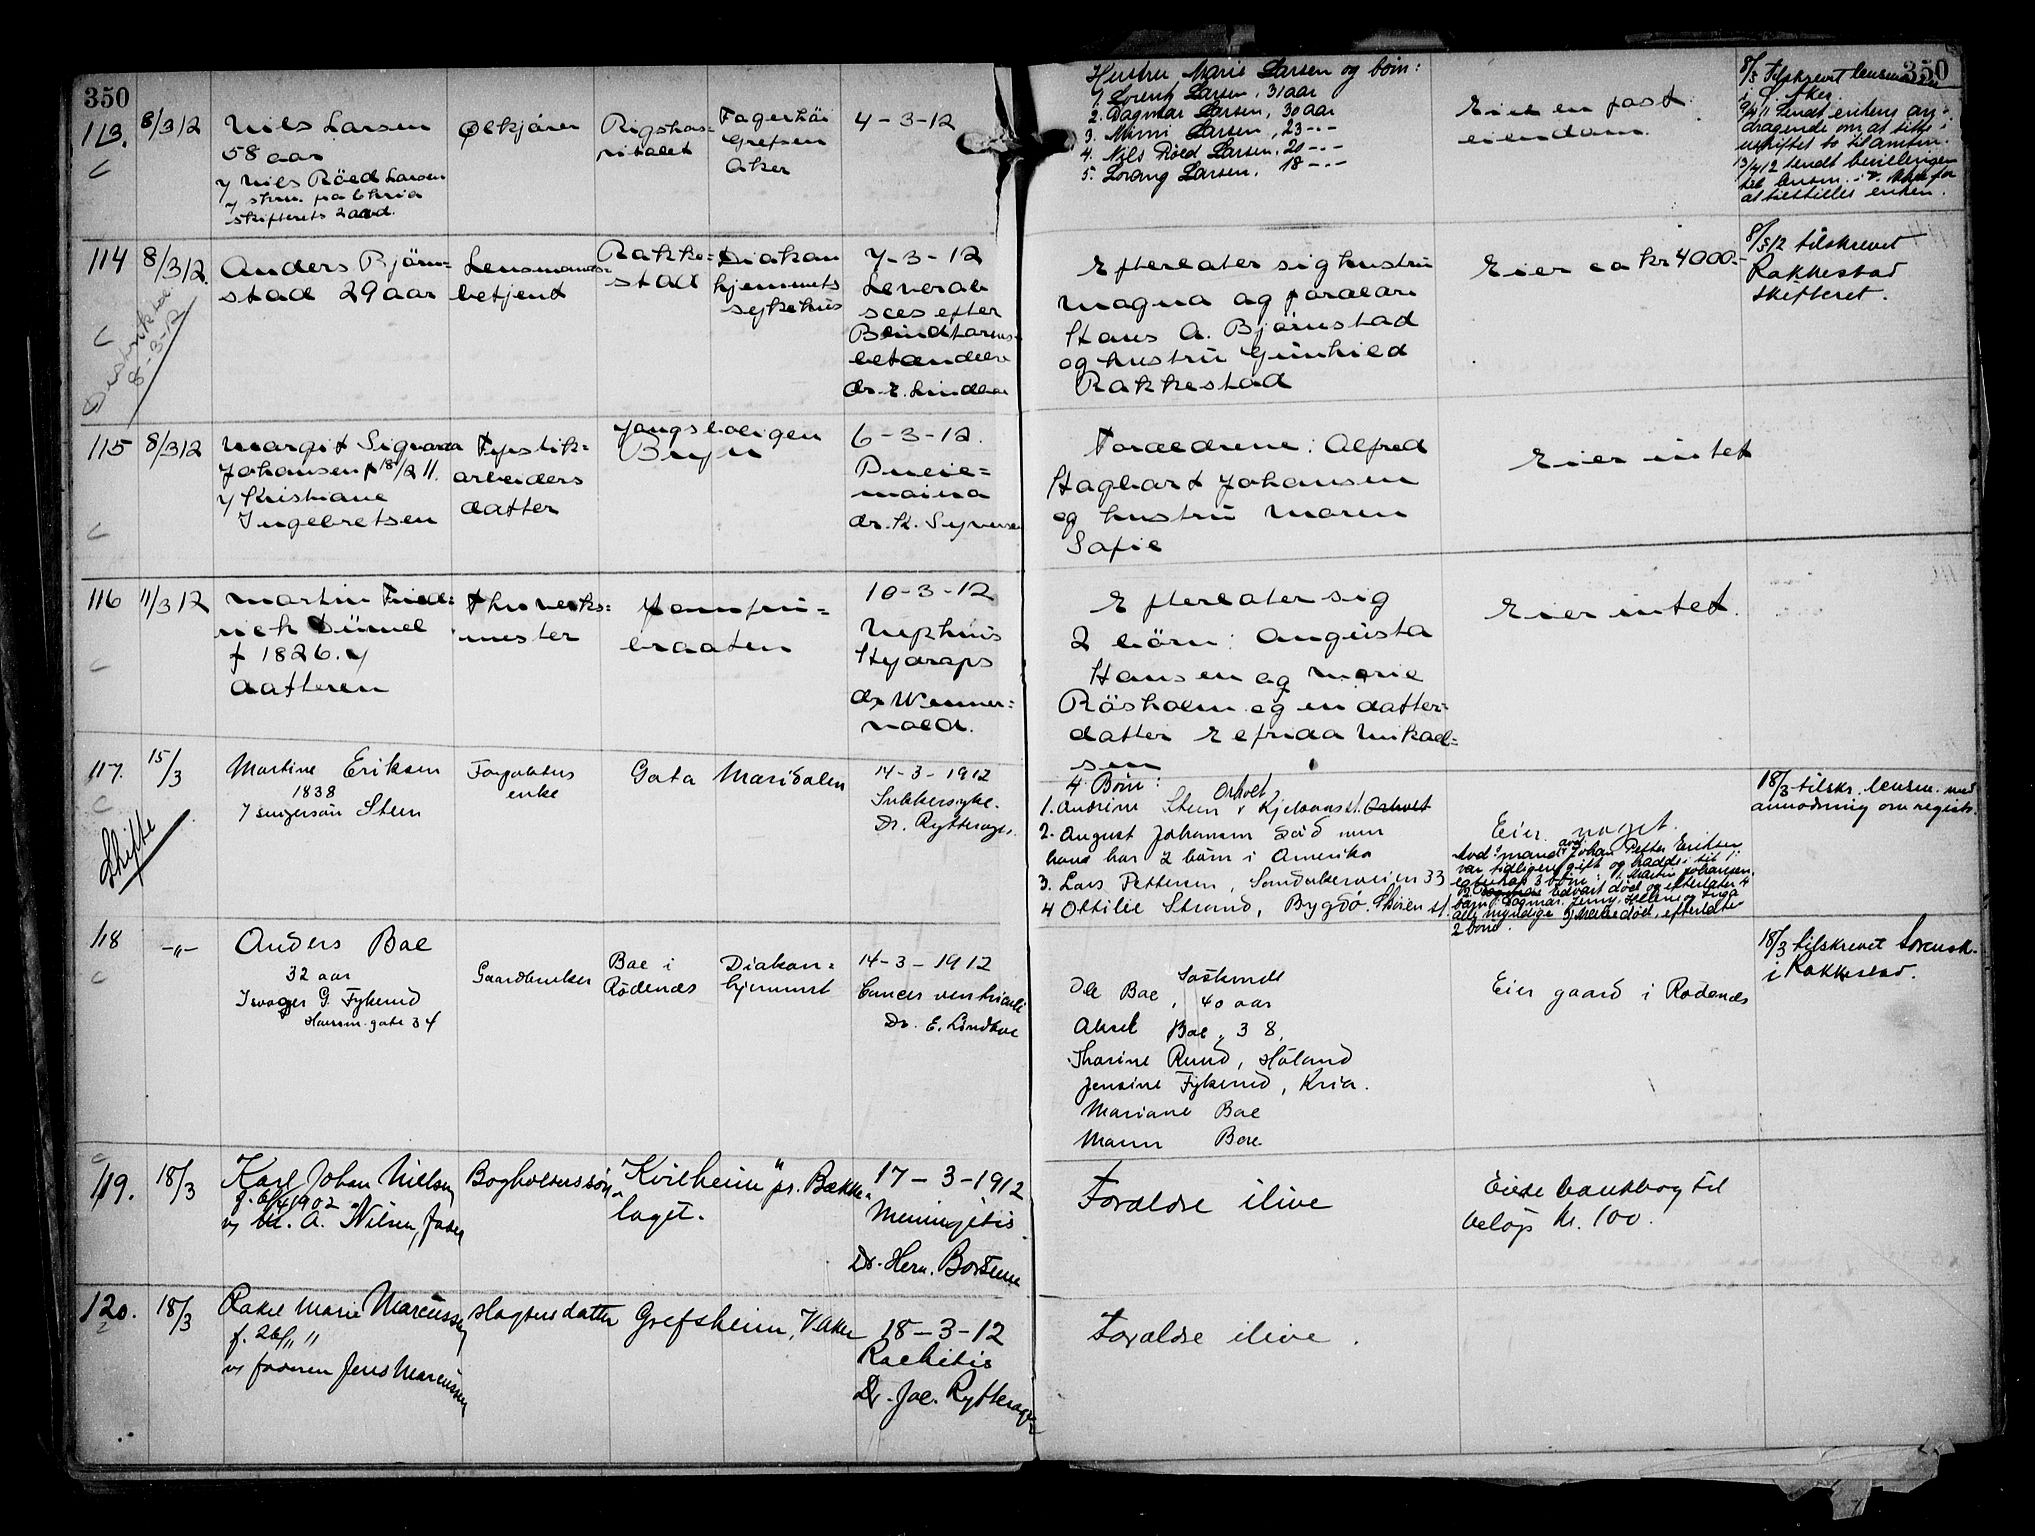 350
350
113. 8/3 12 Nils Larsen
58 aar
v/ Nils Röed Larsen
skifterets 2 avd.
Ølkjører
Rigshos-
pitalet
Fagerhöi
Grefsen
Aker
4-3-12
Hustru Marie Larsen og börn:
1. Lorentz Larsen, 31 aar
2. Dagmar Larsen, 30 aar
3. Mimi Larsen, 23 -"-
4. Nils Röed Larsen, 20 -"-
5. Lorang Larsen, 18 -"-
Eier en fast
eiendom.
8/3 Tilskrevet lensmanden
i V. Aker.
dragende om at sitte i
uskiftet bo til amtm.
13/4 12 sendt bevillingen
til lensm. i V. Aker for
at tilstilles enken.
114 8/3 12. Anders Björn-
stad 29 aar
Lensmands-
betjent
Rakke-
stad
Diakon
hjemmets
sykehus
7-3-12
Leverab
sces efter
Blindtarms-
betændelse
dr. E. Lindboe
8-3-12
Efterlater sig hustru
Magna og forældre
Hans A. Bjørnstad
og hustru Gunhild
Rakkestad
Eier ca kr 4000.-
8/3 12 tilskrevet
Rakkestad
skifteret.
115 8/3 12 Margit Sigvarda
Johansen f 18/2 11.
v/ Kristiane
Ingebretsen
Fyrstik-
arbeiders
datter
Jongsboligen
Bryn
6-3-12.
Pneue-
monia
dr. K. Syversen
Forældrene: Alfred
Hagbart Johansen
og hustru Maren
Sofie
Eier intet
116 11/3 12 Martin Fried-
rich Dümel
f 1826. v/
datteren
Thoverks-
mester
Jomfru-
braaten
10-3-12
Nephrits
Hydrops
dr Wenner-
vold.
Efterlater sig
2 börn: Augusta
Hansen og Marie
Rösholm og en datter-
datter Elfrida Mikael-
sen
Eier intet.
117. 15/3 Martine Eriksen
1838
v/ svigersøn Steen
Skifte
enke
Gata Maridalen
14-3-1912
Sukkersyke.
Dr. Rytterager.
4 Börn:
2. August Johansen död men
hans har 2 börn i Amerika
3. Lars Pettersen, Sandakerveien 33
4 Ottilie Strand, Bygdö.
Eier noget.
Avd.s mand Johan Petter Eriksen
var tidligere gift og hadde i sit 1
egteskap 3 börn: 1. Martin Johansen
edvart död og efterlater 4
börn: Dagmar, Jenny, Helene og Inga
alle myndige
2 börn.
18/3 tilskr. lensm. med
anmodning om registr.
118 -"- Anders Boe
32 aar
Svoger G. Fykerud
gate 34
Gaardbruker
Boe i
Rödenæs
Diakon-
hjemmet
14-3-1912
Cancer ventriculi
Dr. E. Lindboe
Söskende
Ole Boe, 40 aar
Aksel Boe, 38,
Thorine Rund, Höland
Jensine Fykerud, Kria.
Mariane Boe
Boe
Eier gaard i Rödenæs
18/3 tilskrevet Sorensk.
i Rakkestad.
119. 18/3 Karl Johan Nielsen
f. 6/4 1902
v/ M. A. Nilsen, Fader
Bogholderssön
"Kvilheim" pr. Bække-
laget.
17-3-1912
Meningitis.
Dr. Herm. Borthene
Forældre ilive
Eiede bankbog til
beløp kr. 100.
120. 18/3 Rakel Marie Marcussen
f. 26/11 11
v/ faderen Jens Marcussen
Slagters datter
Grefsheim, V. Aker
18-3-12
Rachitis
Dr. Jac. Rytterager
Forældre ilive.